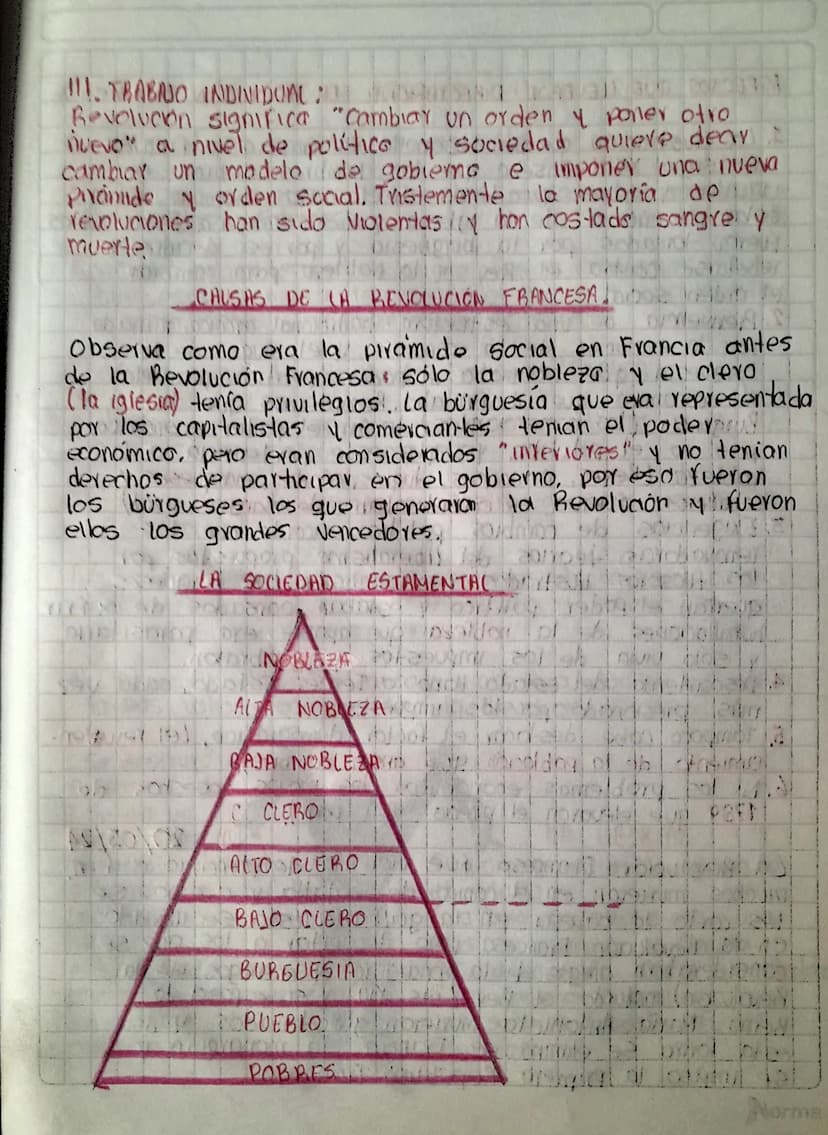 III. TRABAJO INDIVIDUAL:
Revolución significa "Cambiar un orden y poner otro
nuevo" a nivel de político y sociedad quiere decir
cambiar un modelo de gobierno e imponer una nueva
pirámide y orden social. Tristemente la mayoría de
revoluciones han sido violentas y han costado sangre y
muerte.
CAUSAS DE LA REVOLUCIÓN FRANCESA.
Observa como era la pirámide social en Francia antes
de la Revolución Francesa: sólo la nobleza y el clero
(la iglesia) tenía privilegios. La bürguesía que era representada
por los capitalistas y comerciantes tenían el poder
económico, pero eran considerados "inferiores" y no tenían
derechos de participar en el gobierno, por eso fueron
los bürgueses los que generaron la Revolución y fueron
ellos los grandes vencedores.
LA SOCIEDAD ESTAMENTAL
NOBLEZA
ALTA NOBLEZA
BAJA NOBLEZA
CLERO
ALTO CLERO
BAJO CLERO
BURGUESIA
PUEBLO
POBRES
Norma